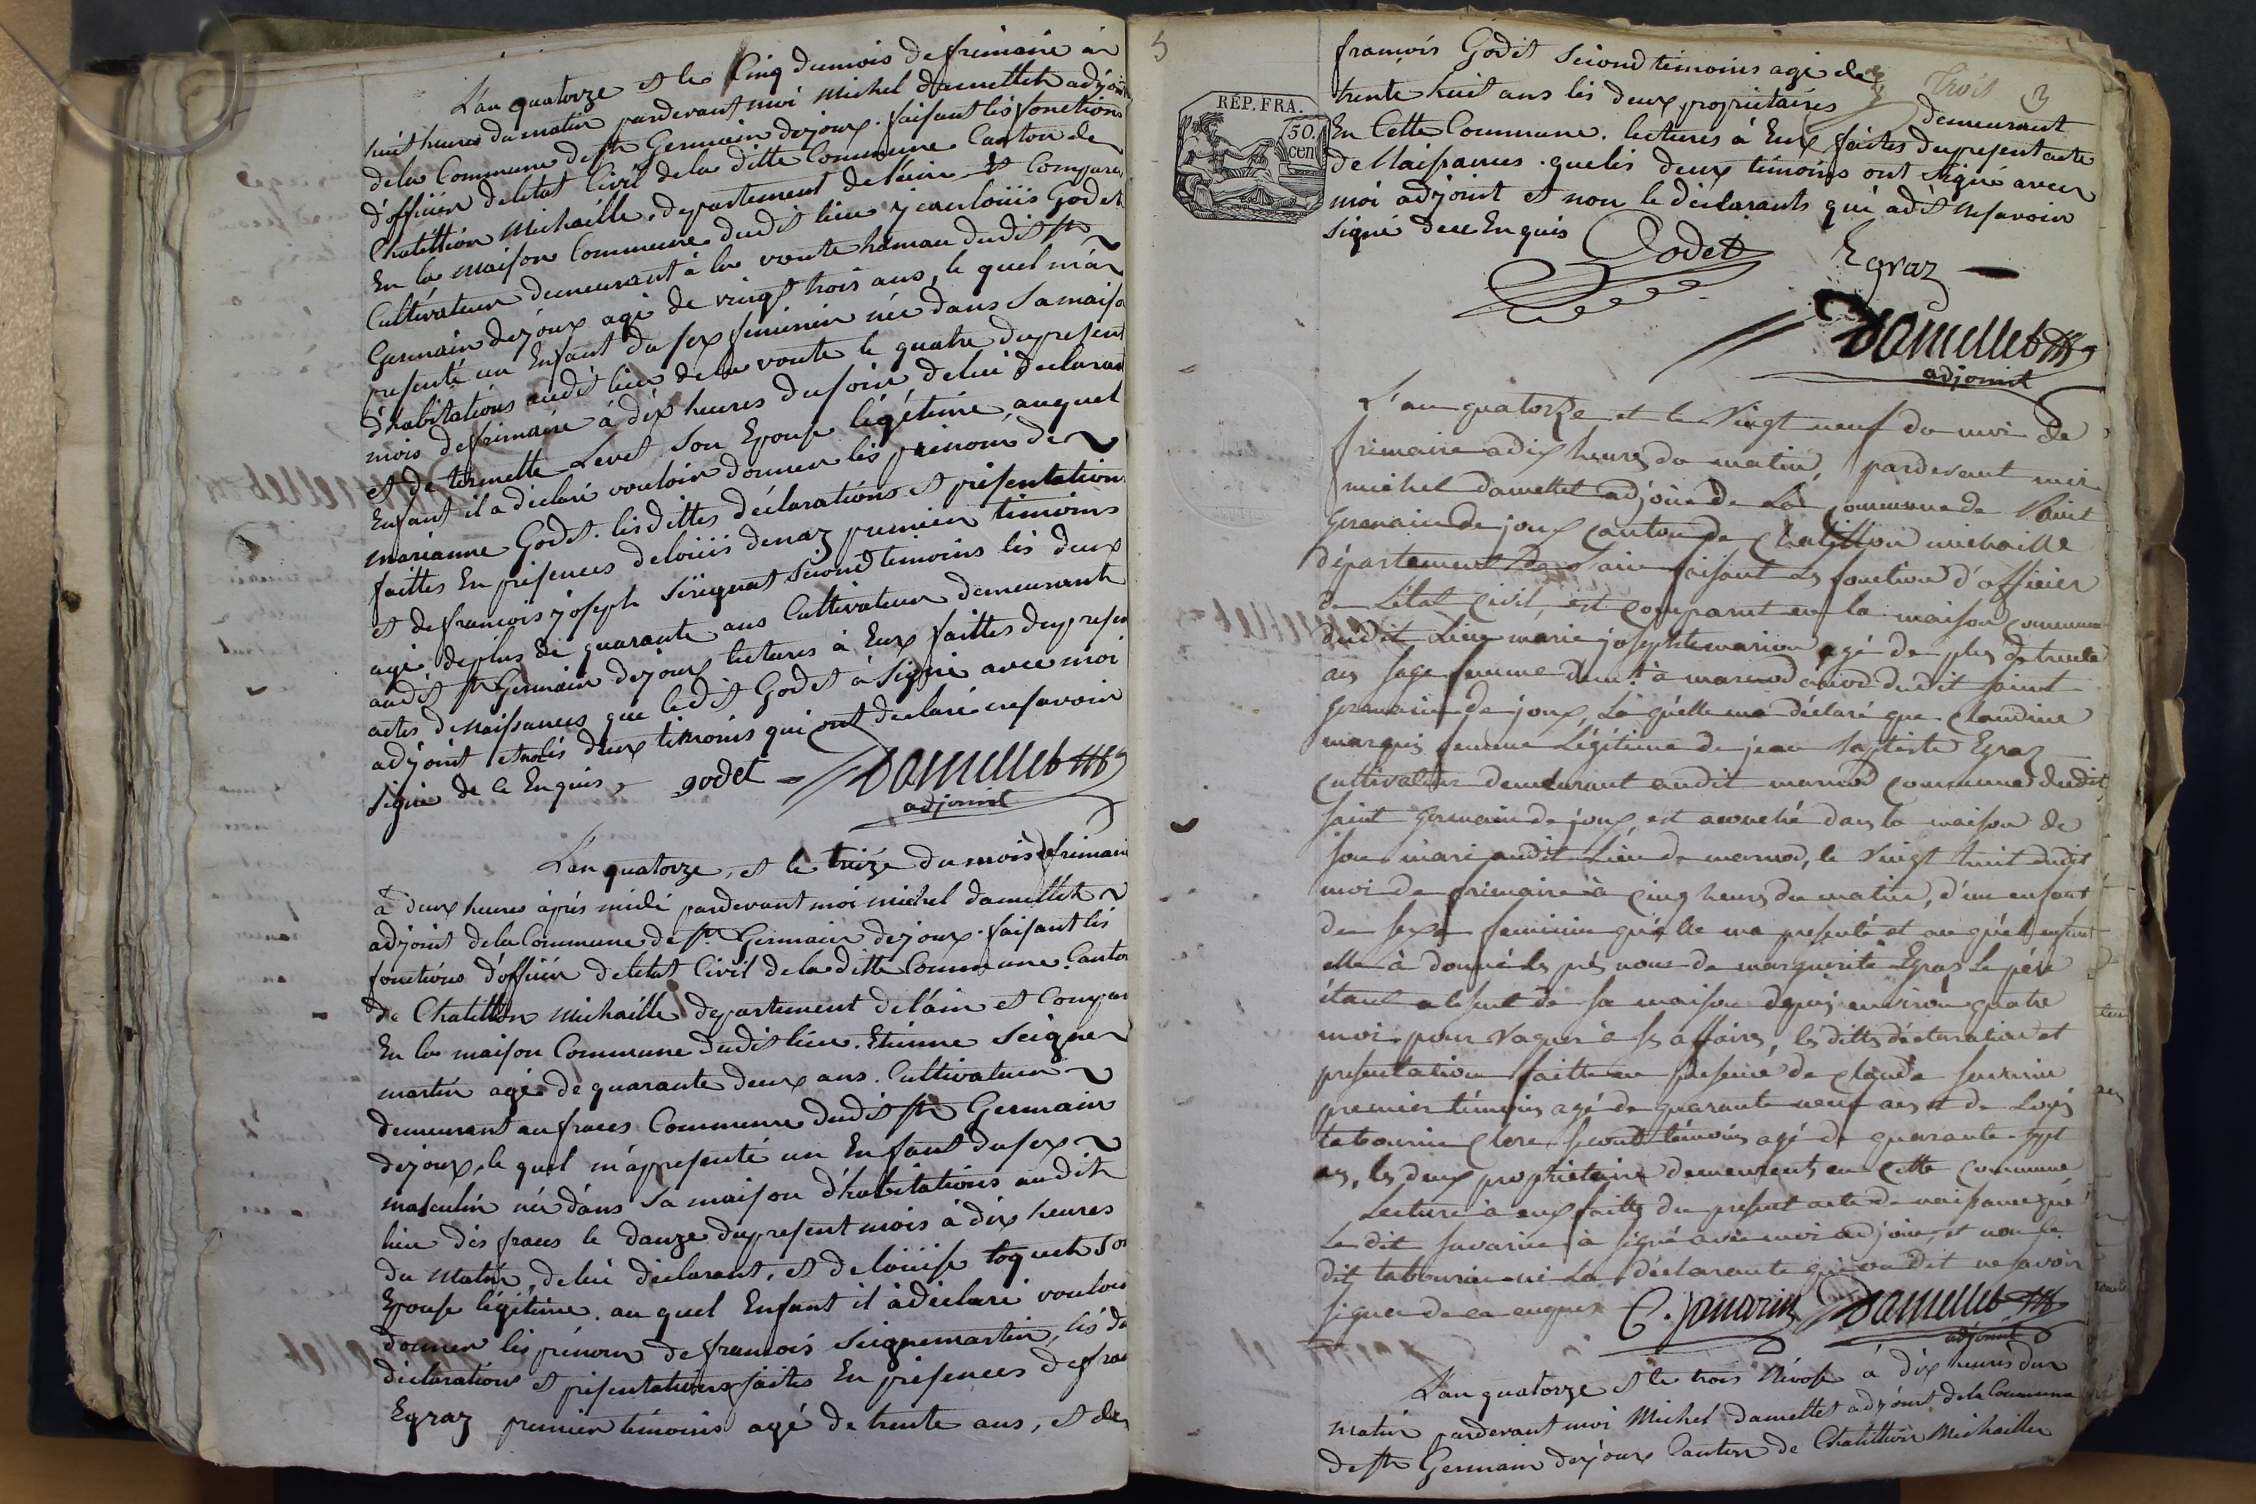 L'an quatorze et le Cinq du mois de frimaire à
huit heures du matin pardevant moi Michel Damellet adjoint
de la Commune de St Germain de joux. faisant les fonctions
d'officier de l'etat Civil de la ditte Commune Canton de
Chatillion Michaille, departement de l'ain et Compare
En la maison Commune dudit lieu jean louiis Godet
Cultivateur demeurant à la voute hamau dudit St
Germain dejoux agé de vingt trois ans, le quel m'a
presenté un Enfant du sex feminin née dans sa maiso
d'habitations audit lieu de la voute le quatre du present
mois de frimaire à dix heures du soir, de lui declarant
et de termette Levet Son Epouse légétime, auquel
Enfant il a déclaré vouloir donner les prénoms de
marianne Godet. les dittes déclarations et présentation
faittes En présences de loüis denaz premier temoins
et de francois joseph Siriguat Sécond temoins les deux
agé de plus de quarante ans Cultivateur demeurants
audit St Germain dejoux lectures à Eux faittes du presen
actes de Naissances que ledit Godet à Signé avec moi
adjoint et non lés deux témoins qui ont declaré ne savoir
signé de ce Enquis, godet Damellet
adjoint
L'an quatorze, et le treize du mois de frimaire
à deux heures àprés midi pardevant moi michel damellet
adjoint de la Commune de St Germain de joux. faisant lés
fonctions d'officier de letat Civil de la ditte Commune. Canton
de Chatillion Michaille departement de l'ain et Compar
En la maison Commune dudit lieu. Etienne Seigne
martin agé de quarante deux ans. Cultivateur
demeurant au fraces Commune dudit St Germain
dejoux, le quel m'àpresenté un Enfant du sex
masculin né dans sa maison d'habitations audit
lieu dès fraces le douze du present mois à dix heures
du Matin, de lui déclarant, et de loüise toquet son
Epouse légitime. au quel Enfant il à déclaré vouloir
donner les prénoms de francois Seignemartin, lés di
déclarations et présentations faites En présences de fran
Egraz premier témoins agé de trente ans, et de
5
Trois 3
RÉP. FRA.
50.
cen
francois Godet Sécond témoins agé de
trente huit ans lés deux, propriétaires demeurant
En Cette Commune. lectures à Eux faites du present acte
de Naissances. que lés deux témoins ont Signé avec
moi adjoint et non le declarants qui a dit ne savoir
Signé de ce Enquis
Godet Egraz
Damellet
adjoint
L'an quatorze et le Vingt neuf du moi de
frimaire a dix heures du matin, pardevant moi
michel damellet adjoint de La commune de Saint
Germain de joux Canton de Chatillon michaille
département de Lain faisant les fonctions d'officier
de L'etat Civil, est comparut en la maison commune
dudit Lieu marie josephte marion agé de plus de trente
ans sage femme demt à marnod dudit saint
Germain de joux, La quelle ma déclaré que Claudine
marquis femme Légitime de jean baptiste Egraz
cultivateur demeurant audit marnod commune dudit
saint Germain de joux, est acouché dans la maison de
son mari audit Lieu de marnod, le Vingt huit dudit
moi de frimaire à Cinq heures du matin, d'un enfant
du sexe feminin qu'elle ma presenté et au quel enfant
elle à donné les prénoms de marguerite Egraz Le père
étant absent de sa maison depuis environ quatre
moi pour vaquer à ses affaires, les dittes déclaration et
presentation faitte en presence de Claude
premier témoins agé de quarante neuf ans et de Louis
tabourin Clerc second témoins agé de quarante sept
ans, les deux propriétaires demeurents en cette commune
Lecture à eux faitte du present acte de naissance que
Le dit à signé avec moi adjoint, et non le
dit tabourin ni La déclarante qui on dit ne savoir
signer de ce enquis Damellet
adjoint
L'an quatorze et le trois Nivose à dix heures du
matin pardevant moi Michel damellet adjoint de la Commune
de St Germain dejoux Canton de Chatillion Michaille